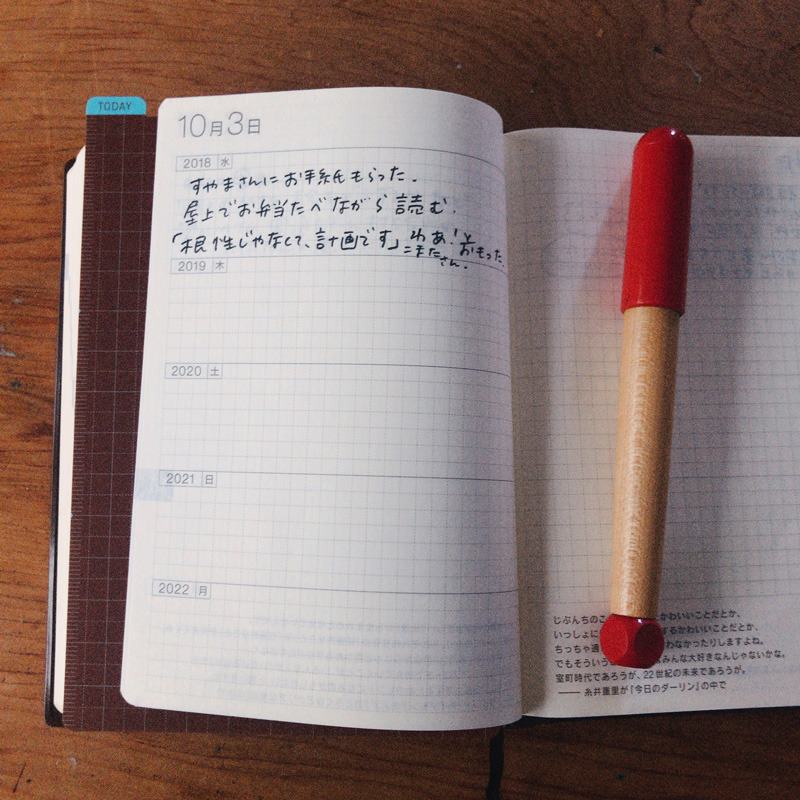 TODAY
10月3日
2018 水
すやまさんにお手紙もらった.
屋上でお弁当たべながら読む.
「根性じゃなくて、計画です」わあ!とおもった.
こまたさん.
2019 木
2020 土
2021 日
2022 月
じぶんちのこ かわいいことだとか、
いっしょに するかわいいことだとか、
ちっちゃ通 わなかったりしますよね。
でもそういう みんな大好きなんじゃないかな。
室町時代であろうが、22世紀の未来であろうが。
—— 糸井重里が『今日のダーリン』の中で